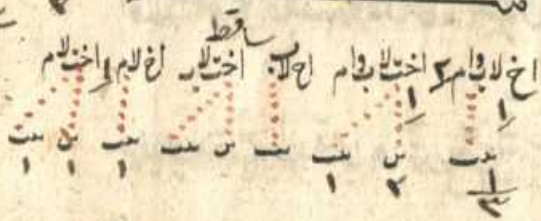 ساقط
اخ لاب وام ٢ اختلاب وام اخ لاب اختلاب اخ لام اختلام
١ ١ ١
بنت س بنت بنت س بنت بنت س بنت
١ ٢ ١ ١ ١ ١
٣